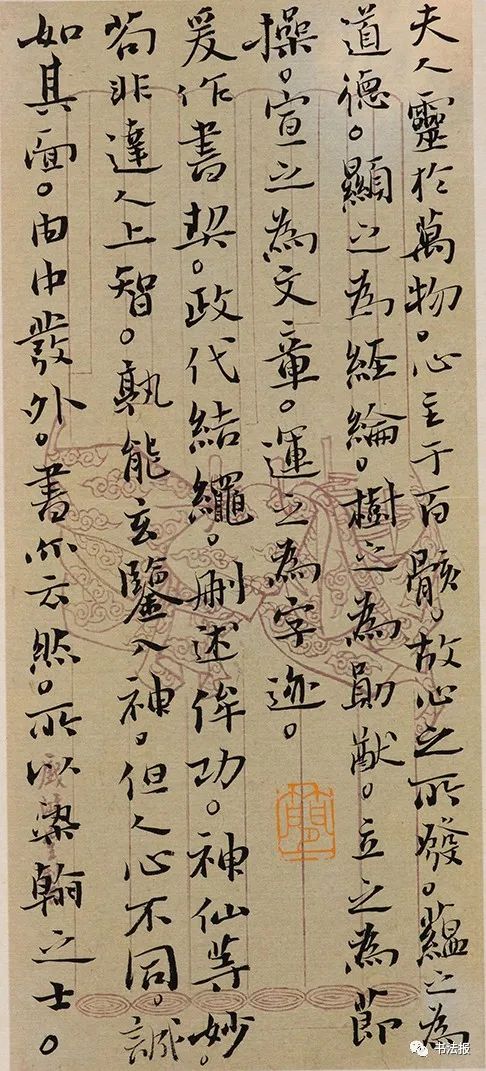 夫人靈於萬物。心主于百骸。故心之所發。蘊之為
道德。顯之為經綸。樹之為勛猷。立之為節
操。宣之為文章。運之為字迹。
爰作書契。政代結繩。刪述侔功。神仙等妙。
苟非達人上智。孰能玄鑒入神。但人心不同。誠
如其面。由中發外。書亦云然。所以染翰之士。
书法报